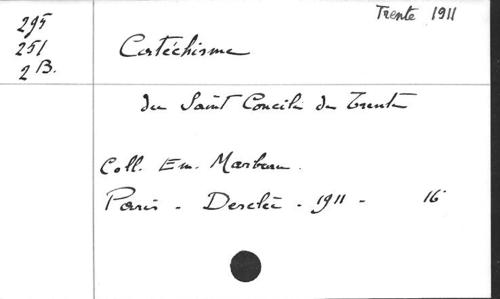 Trente 1911
295
251
2 B.
Catéchisme
du Saint Concile du Trente
Coll. Em. Marbeau.
Paris - Desclée - 1911 - 16°